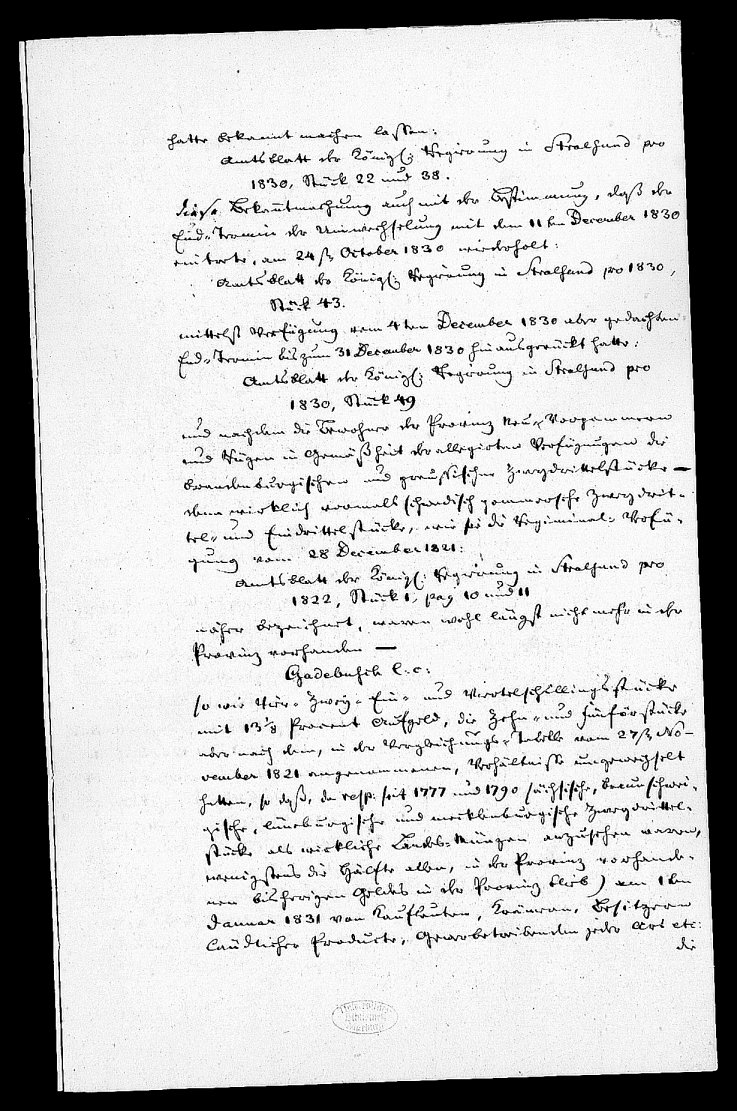 hatte bekannt machen lassen:
Amtsblatt der Königl: Regierung in Stralsund pro
1830, Stück 22 und 38.
diese Bekanntmachung auch mit der Bestimmung, daß der
End-Termin der Umwechselung mit dem 11ten December 1830
eintrete, am 24ſt October 1830 wiederholt:
Amtsblatt der Königl: Regierung in Stralsund pro 1830,
Stück 43.
mittelst Verfügung vom 4ten December 1830 aber gedachten
End-Termin bis zum 31 December 1830 hinausgerückt hatte:
Amtsblatt der Königl: Regierung in Stralsund pro
1830, Stück 49
und nachdem die Bewohner der Provinz Neu-Vorpommern
und Rügen in Gemäßheit der allegirten Verfügungen die
brandenburgischen und preussischen Zweydrittelstücke —
denn wirklich vormals schwedisch pommersche Zweydrit-
tel- und Eindrittelstücke, wie sie die Regiminal-Verfü-
gung vom 28 December 1821:
Amtsblatt der Königl: Regierung in Stralsund pro
1822, Stück 1, pag 10 und 11
näher bezeichnet, waren wohl längst nicht mehr in der
Provinz vorhanden —
Gadebusch l: c:
so wie Vier- Zwey- Ein- und Viertelschillingsstücke
mit 13⅛ Procent Aufgeld, die Zehn- und Fünförstücke
aber nach dem, in der Vergleichungs-Tabelle vom 27ſt No-
vember 1821 angenommenen, Verhältnisse umgewechselt
hatten, so daß, da resp: seit 1777 und 1790 sächsische, braunschwei-
gische, lüneburgische und mecklenburgische Zweydrittel-
stücke als wirkliche Landes-Münzen anzusehen waren,
wenigstens die Hälfte alles, in der Provinz vorhande-
nen bisherigen Geldes in der Provinz blieb) am 1ten
Januar 1831 von Kaufleuten, Krämern, Besitzern
ländlicher Producte, Gewerbetreibenden jeder Art etc:
die
Bibliothek